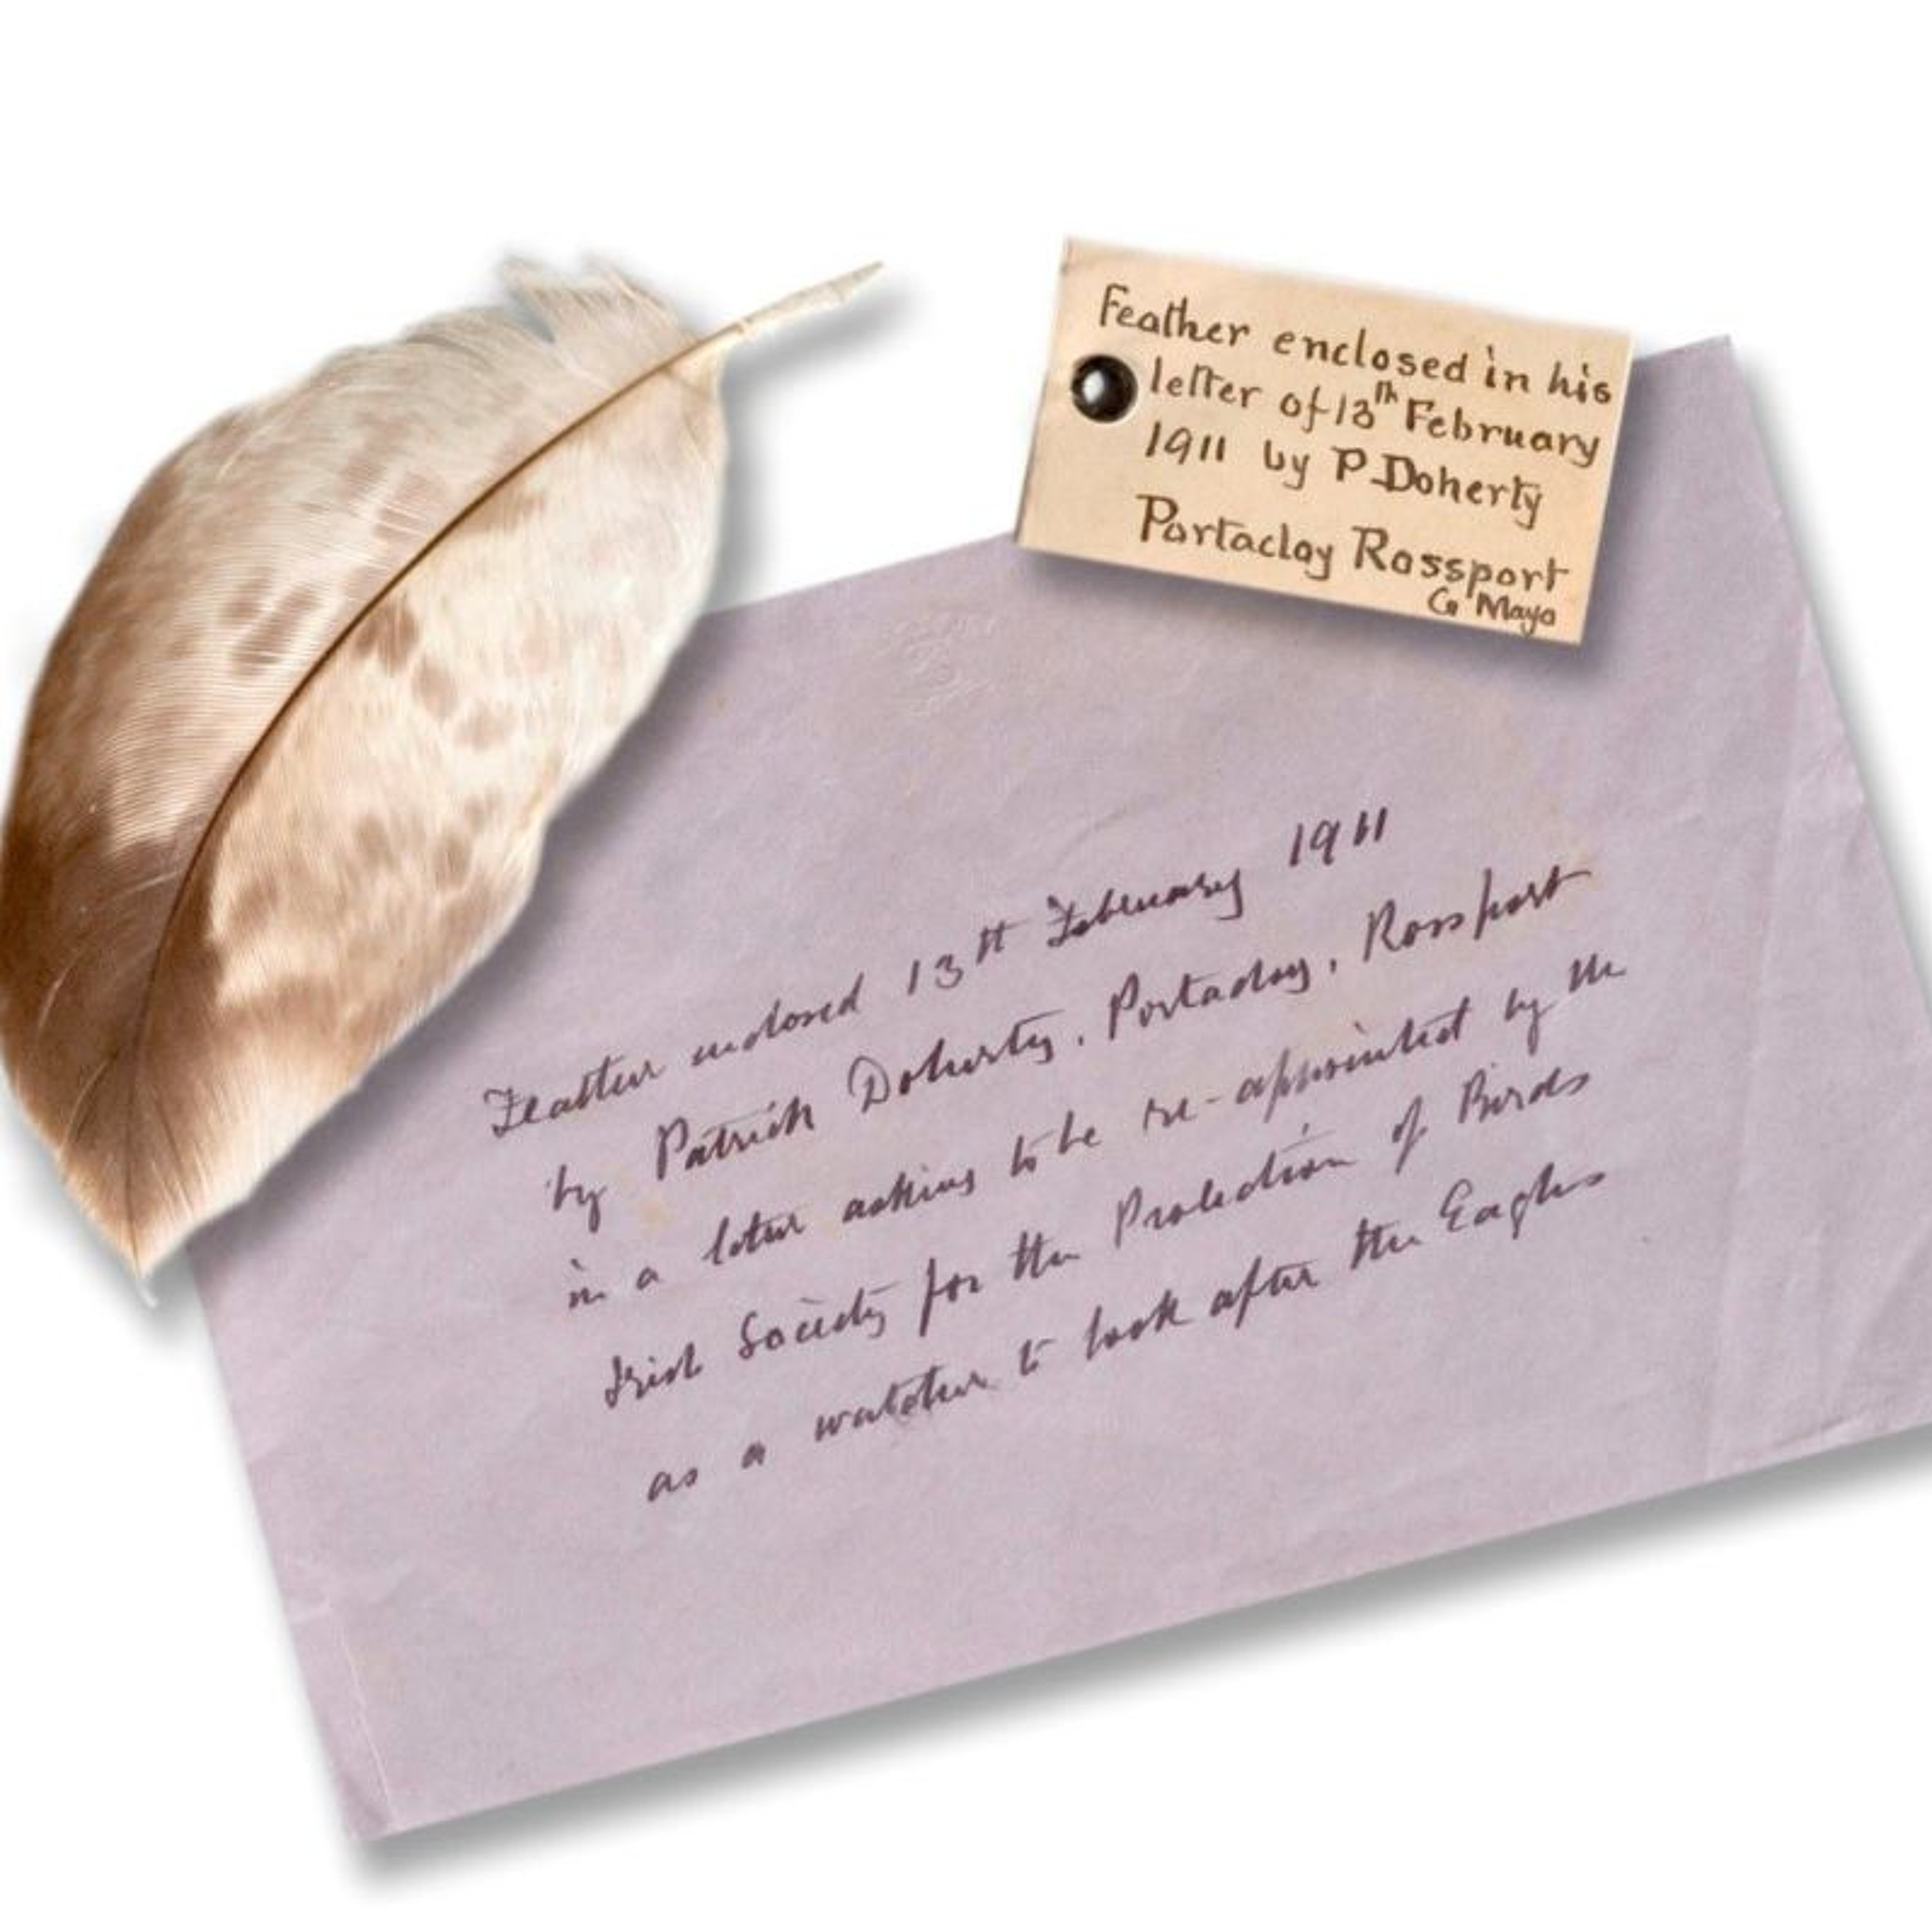 Feather enclosed in his
letter of 13th February
1911 by P. Doherty
Portaclay Rossport
Co Mayo
Feather enclosed 13th February 1911
by Patrick Doherty, Portaclay, Rossport
in a letter asking to be re-appointed by the
Irish Society for the Protection of Birds
as a watcher to look after the Eagles